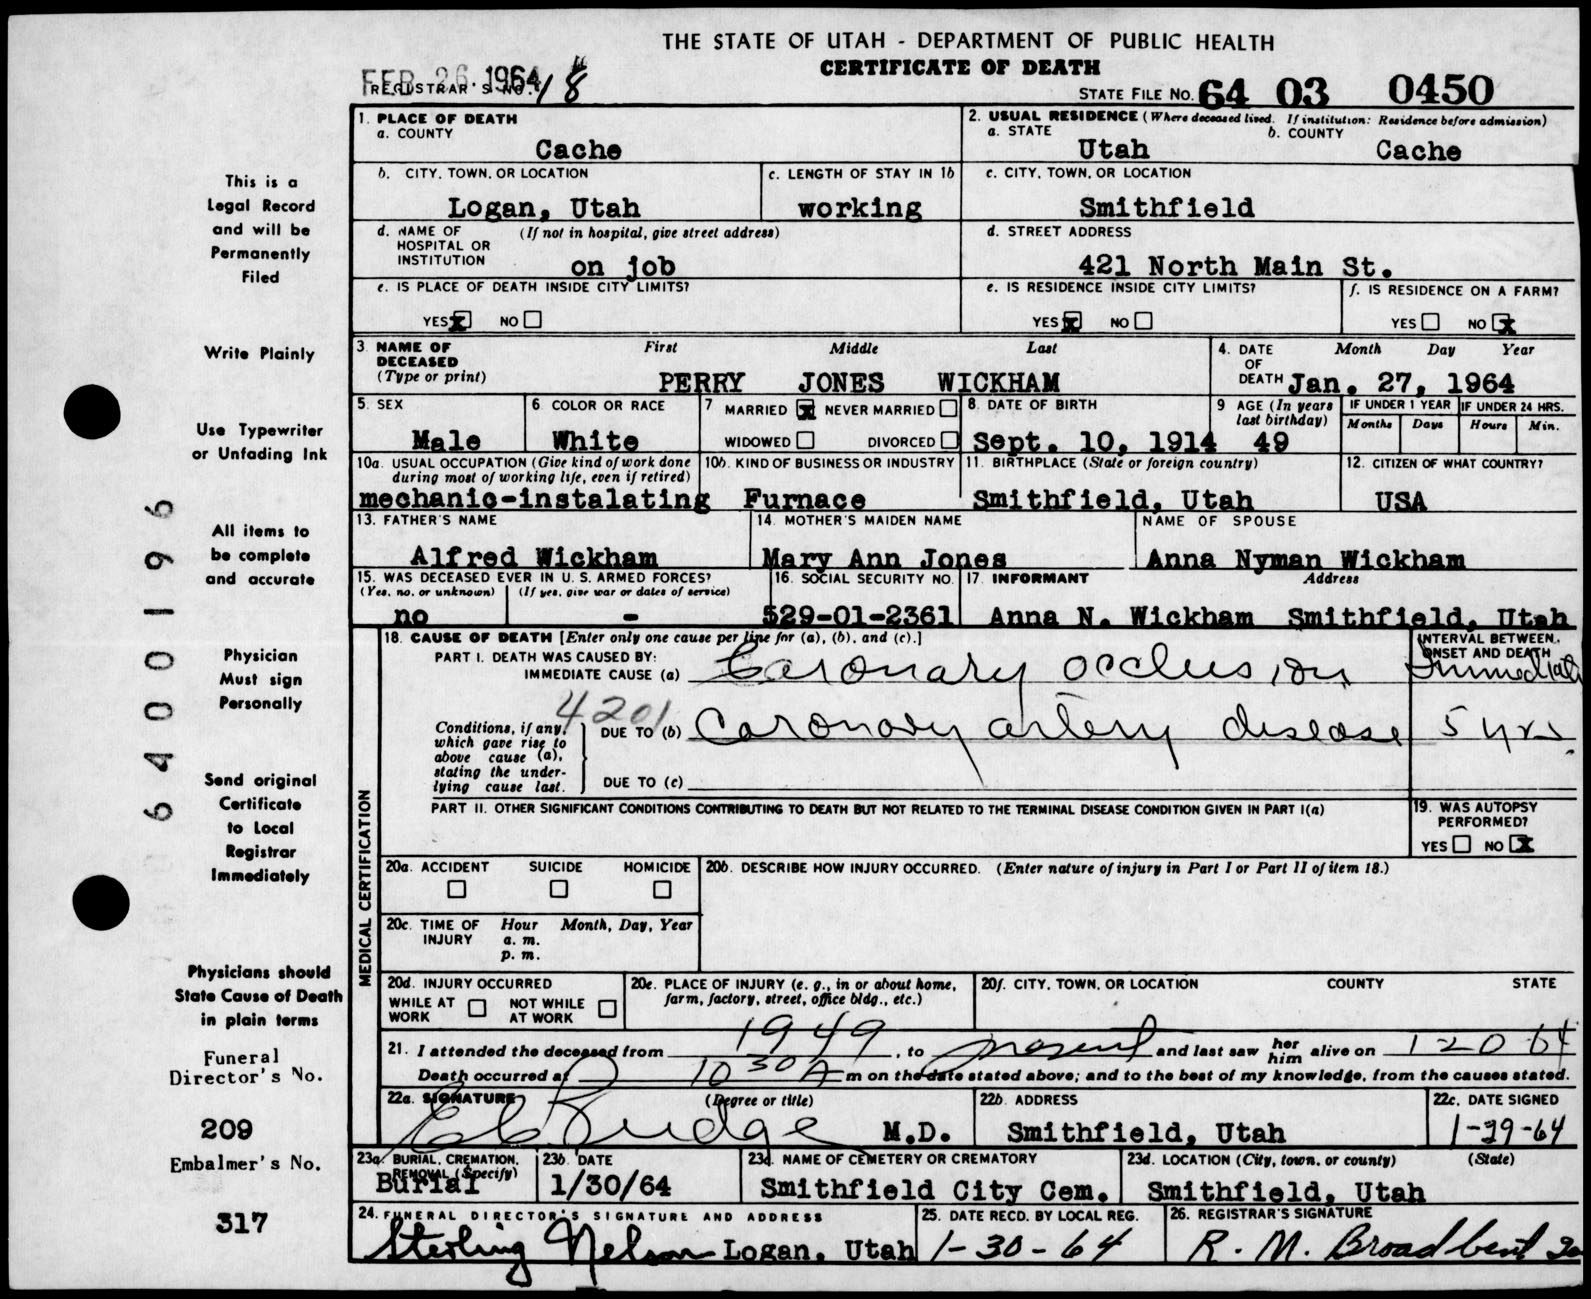 THE STATE OF UTAH - DEPARTMENT OF PUBLIC HEALTH
CERTIFICATE OF DEATH
FEB 26 1964
REGISTRAR'S NO. 18
STATE FILE NO. 64 03 0450
1. PLACE OF DEATH
a. COUNTY
Cache
2. USUAL RESIDENCE (Where deceased lived. If institution: Residence before admission)
a. STATE b. COUNTY
Utah Cache
b. CITY, TOWN, OR LOCATION
Logan, Utah
c. LENGTH OF STAY IN 1b
working
c. CITY, TOWN, OR LOCATION
Smithfield
d. NAME OF HOSPITAL OR INSTITUTION (If not in hospital, give street address)
on job
d. STREET ADDRESS
421 North Main St.
e. IS PLACE OF DEATH INSIDE CITY LIMITS?
YES x NO
e. IS RESIDENCE INSIDE CITY LIMITS?
YES x NO
f. IS RESIDENCE ON A FARM?
YES NO x
3 NAME OF DECEASED (Type or print)
First Middle Last
PERRY JONES WICKHAM
4. DATE OF DEATH Month Day Year
Jan. 27, 1964
5. SEX
Male
6. COLOR OR RACE
White
7 MARRIED x NEVER MARRIED
WIDOWED DIVORCED
8. DATE OF BIRTH
Sept. 10, 1914
9 AGE (In years last birthday)
49
IF UNDER 1 YEAR IF UNDER 24 HRS.
Months Days Hours Min.
10a. USUAL OCCUPATION (Give kind of work done during most of working life, even if retired)
mechanic-instalating
10b. KIND OF BUSINESS OR INDUSTRY
Furnace
11. BIRTHPLACE (State or foreign country)
Smithfield, Utah
12. CITIZEN OF WHAT COUNTRY?
USA
13. FATHER'S NAME
Alfred Wickham
14. MOTHER'S MAIDEN NAME
Mary Ann Jones
NAME OF SPOUSE
Anna Nyman Wickham
15. WAS DECEASED EVER IN U. S. ARMED FORCES?
(Yes, no, or unknown) (If yes, give war or dates of service)
no -
16. SOCIAL SECURITY NO.
529-01-2361
17. INFORMANT Address
Anna N. Wickham Smithfield, Utah
MEDICAL CERTIFICATION
18. CAUSE OF DEATH [Enter only one cause per line for (a), (b), and (c).]
INTERVAL BETWEEN ONSET AND DEATH
PART I. DEATH WAS CAUSED BY:
IMMEDIATE CAUSE (a) Coronary occlusion Immediate
4201
Conditions, if any, which gave rise to above cause (a), stating the underlying cause last.
DUE TO (b) Coronary artery disease 5 yrs.
DUE TO (c)
PART II. OTHER SIGNIFICANT CONDITIONS CONTRIBUTING TO DEATH BUT NOT RELATED TO THE TERMINAL DISEASE CONDITION GIVEN IN PART I(a)
19. WAS AUTOPSY PERFORMED?
YES NO x
20a. ACCIDENT SUICIDE HOMICIDE
20b. DESCRIBE HOW INJURY OCCURRED. (Enter nature of injury in Part I or Part II of item 18.)
20c. TIME OF INJURY Hour Month, Day, Year
a. m.
p. m.
20d. INJURY OCCURRED
WHILE AT WORK NOT WHILE AT WORK
20e. PLACE OF INJURY (e. g., in or about home, farm, factory, street, office bldg., etc.)
20f. CITY, TOWN, OR LOCATION COUNTY STATE
21. I attended the deceased from 1949, to present and last saw her him alive on 1 20 64
Death occurred at 10 30 A m on the date stated above; and to the best of my knowledge, from the causes stated.
22a. SIGNATURE (Degree or title)
Budge M.D.
22b. ADDRESS
Smithfield, Utah
22c. DATE SIGNED
1-29-64
23a. BURIAL, CREMATION, REMOVAL (Specify)
Burial
23b. DATE
1/30/64
23c. NAME OF CEMETERY OR CREMATORY
Smithfield City Cem.
23d. LOCATION (City, town, or county) (State)
Smithfield, Utah
24. FUNERAL DIRECTOR'S SIGNATURE AND ADDRESS
Sterling Nelson Logan, Utah
25. DATE RECD. BY LOCAL REG.
1-30-64
26. REGISTRAR'S SIGNATURE
R. M. Broadbent
This is a
Legal Record
and will be
Permanently
Filed
Write Plainly
Use Typewriter
or Unfading Ink
All items to
be complete
and accurate
Physician
Must sign
Personally
Send original
Certificate
to Local
Registrar
Immediately
Physicians should
State Cause of Death
in plain terms
Funeral
Director's No.
209
Embalmer's No.
317
6400196